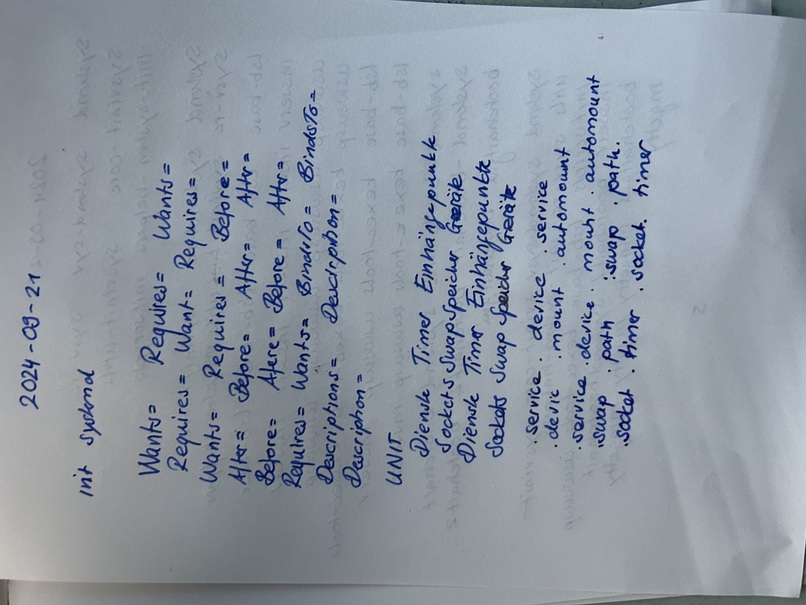 2024-09-21
init systemd
Wants= Requires= Wants=
Requires= Want= Requires=
Wants= Requires= Before=
After= Before= After= After=
Before= Afere= Before= After=
Requires= Wants= BindsTo= BindsTo=
Descriptions= Description=
Description=
UNIT
Dienste Timer Einhängepunkte
Sockets Swap Speicher Geräte
Dienste Timer Einhängepunkte
Sockets Swap Speicher Geräte
.service .device .service
.devic .mount .automount
.service .device .mount .automount
.swap .path .swap .path.
.socket .timer .socket. timer